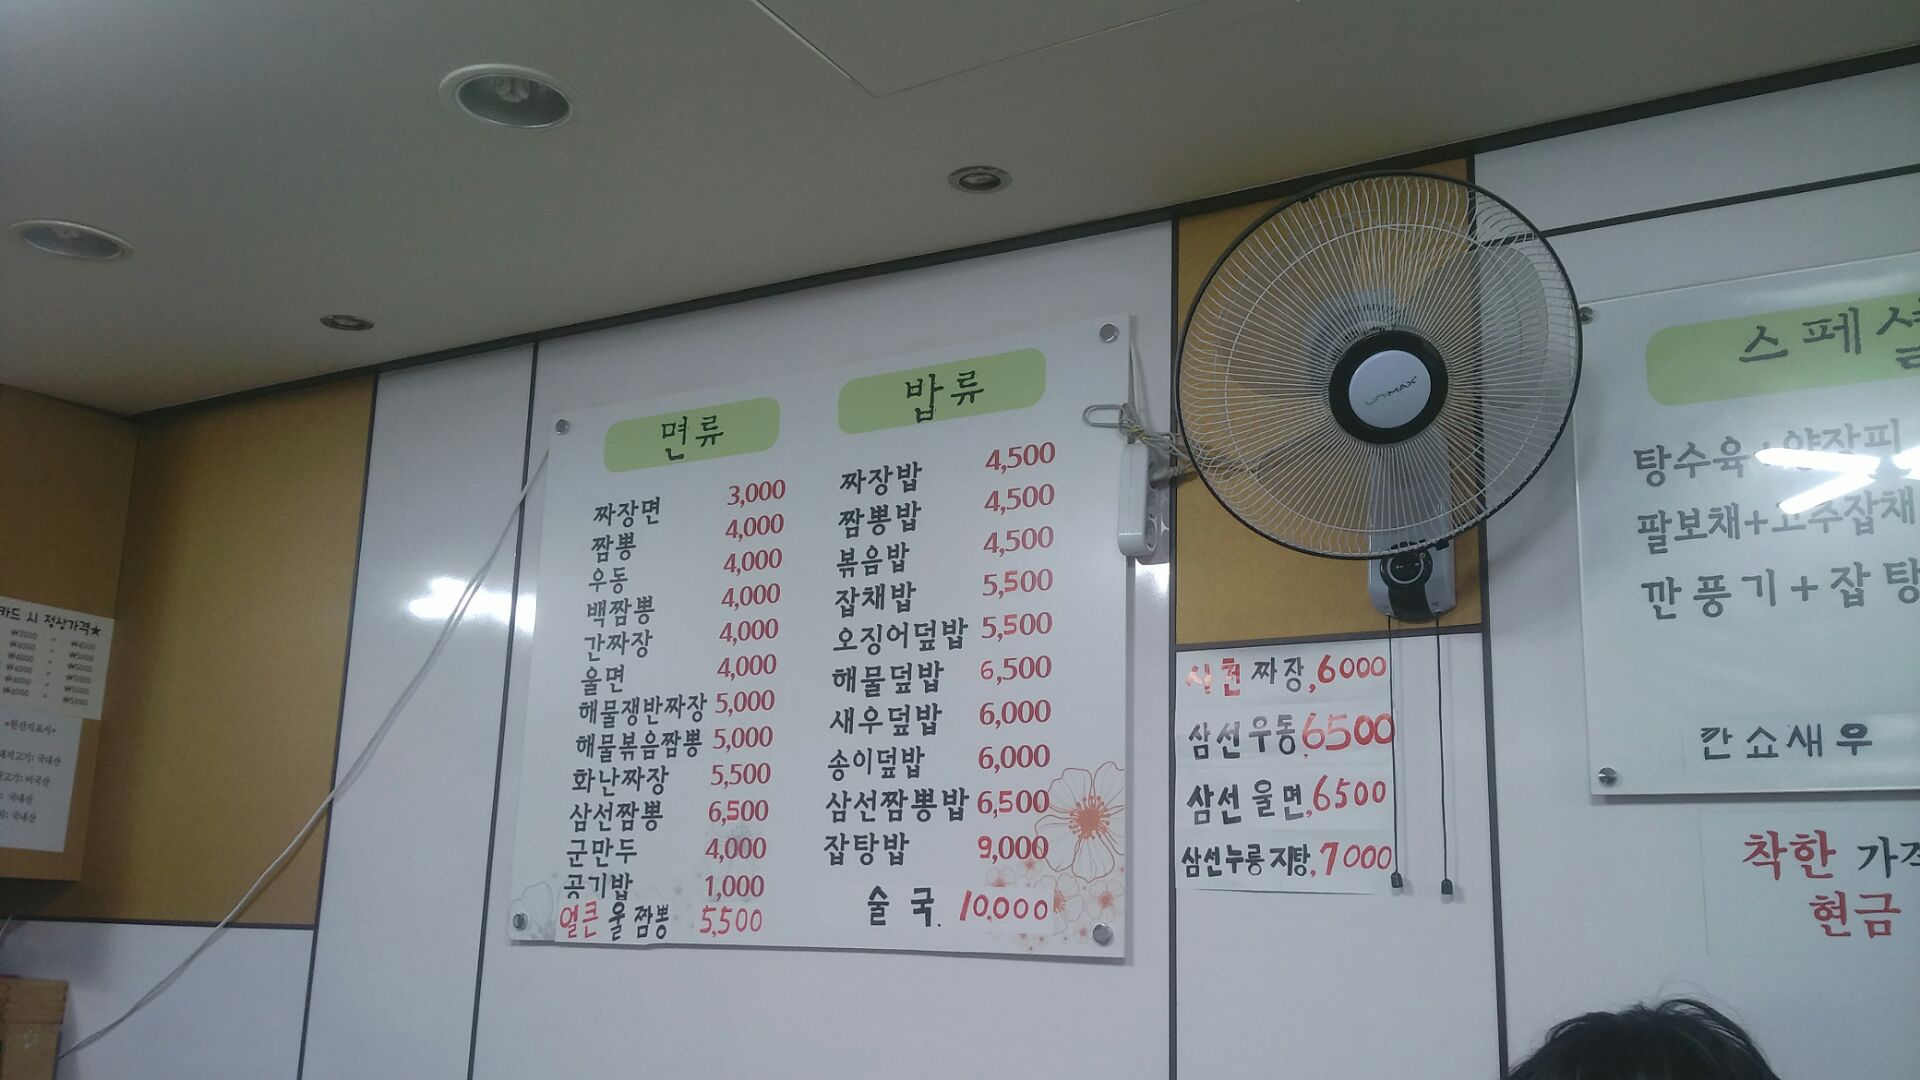 카드 시 정상가격★
₩3000 = ₩4500
₩4000 = ₩5000
₩4000 = ₩5000
₩4000 = ₩5000
₩4000 = ₩5000
₩5000
*원산지표시*
돼지고기: 국내산
고기: 미국산
: 국내산
: 국내산
면류
짜장면 3,000
짬뽕 4,000
우동 4,000
백짬뽕 4,000
간짜장 4,000
울면 4,000
해물쟁반짜장 5,000
해물볶음짬뽕 5,000
화난짜장 5,500
삼선짬뽕 6,500
군만두 4,000
공기밥 1,000
얼큰 울 짬뽕 5,500
밥류
짜장밥 4,500
짬뽕밥 4,500
볶음밥 4,500
잡채밥 5,500
오징어덮밥 5,500
해물덮밥 6,500
새우덮밥 6,000
송이덮밥 6,000
삼선짬뽕밥 6,500
잡탕밥 9,000
술국. 10,000
UNIMAX
사천 짜장, 6000
삼선우동, 6500
삼선 울면, 6500
삼선누룽지탕, 7000
스페셜
탕수육+양장피
팔보채+고추잡채
깐풍기+잡탕
깐쇼새우
착한 가격
현금